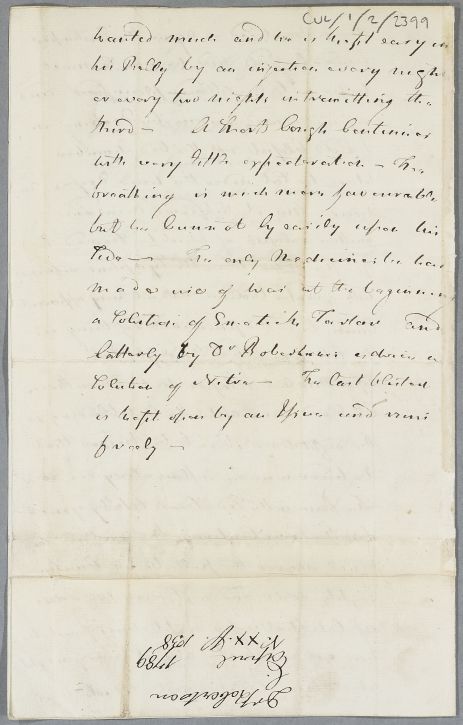 CUL/1/2/2399
wanted much and he is kept easy in
his Belly by an injection every night
or every two nights intermitting the
third — A Short Cough Continues
with very little expectoration — The
breathing is much more favourable
but he Cannot ly easily upon his
Side — The only Medicines he has
made use of was at the beginning
a Solution of Emetick Tartar and
latterly by Dr Robertsons advice a
Solution of Nitre — The last blister
is kept open by an Issue and runs
freely —
Dr Robertson
1789
N. XX. p. 138